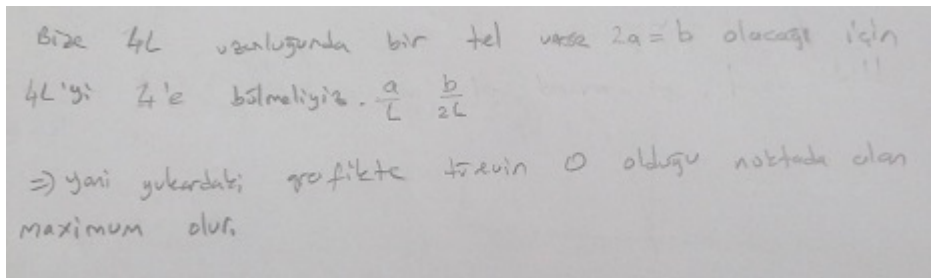 Bize 4L uzunluğunda bir tel verse 2a = b olacağı için
4L'yi 4'e bölmeliyiz. a/L b/2L
=> yani yukardaki grafikte türevin 0 olduğu noktada alan
maximum olur.